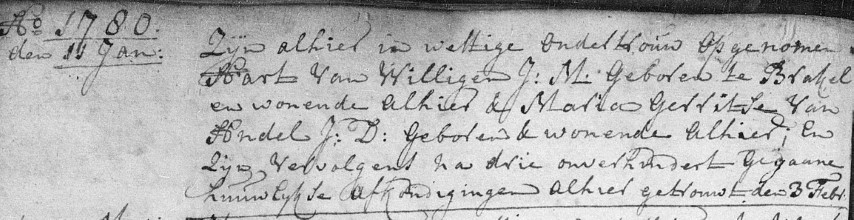 Aº 1780.
den 11 Jan:
Zijn alhier in wettige ondertrouw opgenomen
Aart Van Willigen J: M: Geboren te Brakel
en wonende alhier & Maria Gerritse Van
Andel J: D: Geboren & wonende alhier; En
Zijn vervolgens na drie onverhindert Gegaane
huuwlykse afkondigingen alhier getrouwt den 3 Febr: